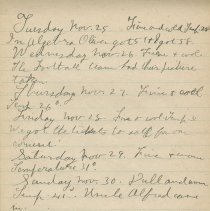 Tuesday Nov. 25. Fine and cold
In Algebra Oliver got 51 I got 58.
Wednesday Nov. 26. Fine & cold.
The Football team had their picture
taken.
Thursday Nov. 27. Fine & cold
Temp 26°
Friday Nov. 28. Fine & cold
We got the tickets to sell for our
Saturday Nov. 29. Fine & warm
Temperature 41°.
Sunday Nov. 30. Dull and warm
Temp 41°. Uncle Alfred came